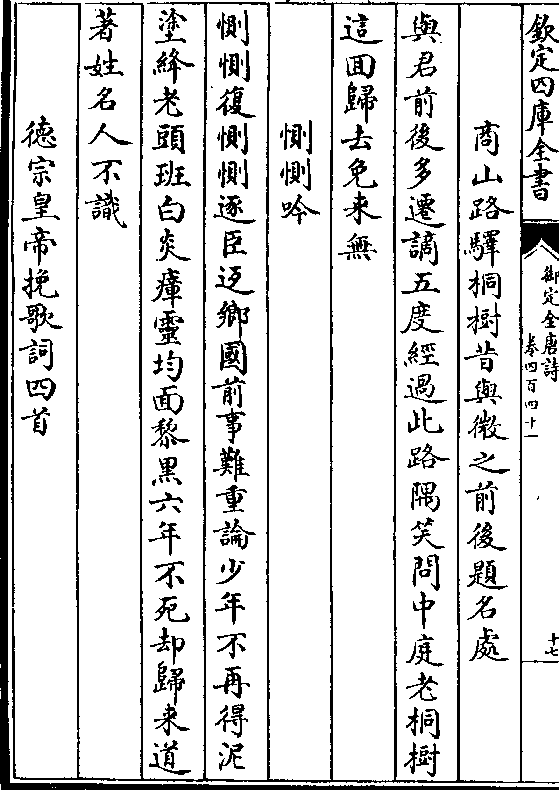 欽定四庫全書
御定全唐詩
卷四百四十一
十七
商山路驛桐樹昔與微之前後題名處
與君前後多遷謫五度經過此路隅笑問中庭老桐樹
這回歸去免来無
惻惻吟
惻惻復惻惻逐臣返鄉國前事難重論少年不再得泥
塗絳老頭班白炎瘴靈均面黎黒六年不死却歸来道
著姓名人不識
徳宗皇帝挽歌詞四首